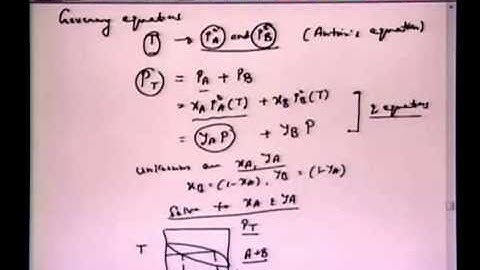 Governing equations
T → p°A and p°B (Antoine's equation)
PT = pA + pB
= xA p°A(T) + xB p°B(T)
= yA P + yB P ] 2 equations
Unknowns are xA, yA
xB = (1-xA), yB = (1-yA)
Solve to xA & yA
PT
T A+B